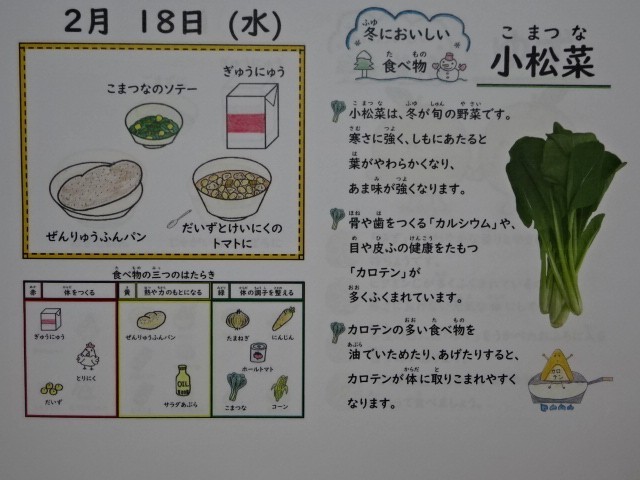 2月 18日 (水)
こまつなのソテー
ぎゅうにゅう
ぜんりゅうふんパン
だいずとけいにくの
トマトに
食べ物の三つのはたらき
赤 体をつくる
黄 熱や力のもとになる
緑 体の調子を整える
ぎゅうにゅう
とりにく
だいず
ぜんりゅうふんパン
サラダあぶら
たまねぎ
にんじん
ホールトマト
こまつな
コーン
冬においしい
食べ物
小松菜
小松菜は、冬が旬の野菜です。
寒さに強く、しもにあたると
葉がやわらかくなり、
あま味が強くなります。
骨や歯をつくる「カルシウム」や、
目や皮ふの健康をたもつ
「カロテン」が
多くふくまれています。
カロテンの多い食べ物を
油でいためたり、あげたりすると、
カロテンが体に取りこまれやすく
なります。